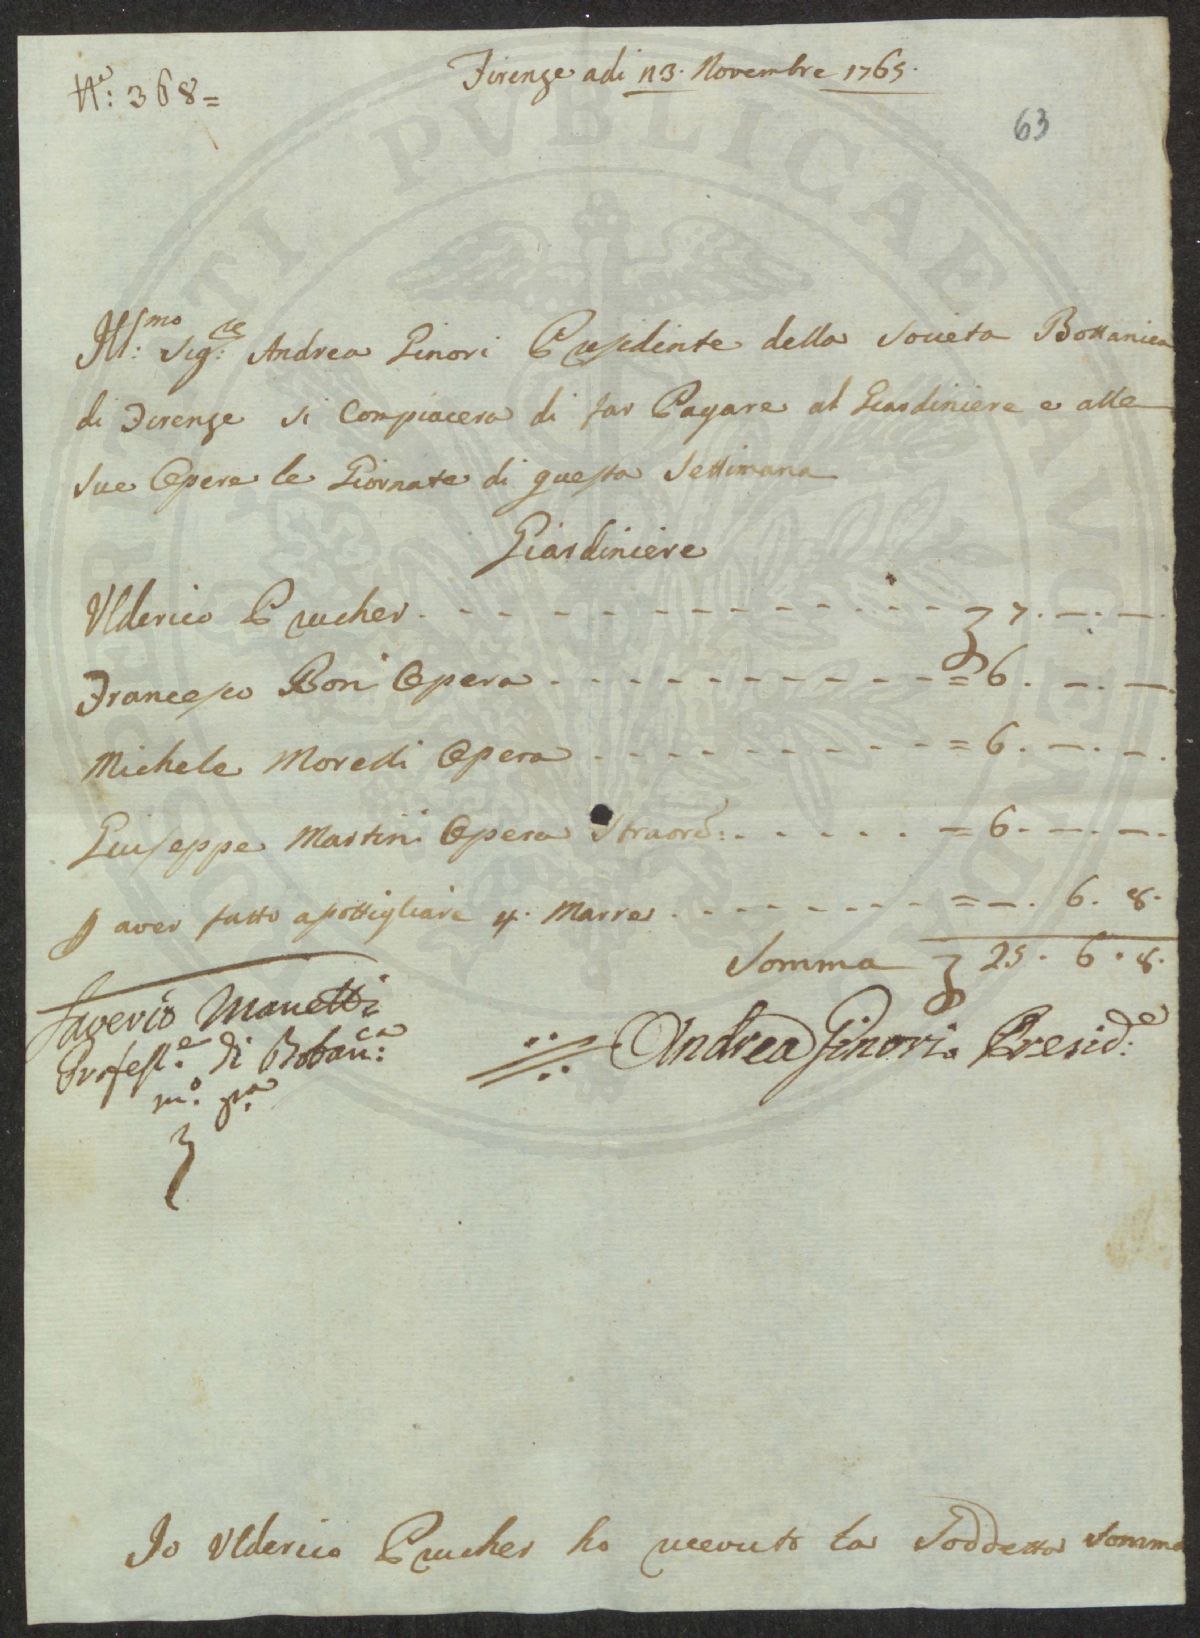 N.º: 368=
Firenze adi n3. Novembre 1765.
63
Ill:mo Sig:re Andrea Ginori Presidente della Societa Bottanica
di Firenze si Compiacera di far Pagare al Giardiniere e alle
sue Opere le Giornate di questa Settimana
Giardiniere
Ulderico Prucher. - - - - - - - - - - - - - 7. —. —.
Francesco Boni Opera - - - - - - - - - - - = 6. —. —.
Michele Moredi Opera - - - - - - - - - - = 6. —. —.
Giuseppe Martini Opera Straord:. - - - - - = 6. —. —.
p aver fatto apottigliare 4. Marre. - - - - - - - = —. 6. 8.
Somma 25. 6. 8.
Saverio Manetti
Profess.e di Botan:ca
m.o p.a
Andrea Ginori Presid:e
Io Ulderico Prucher ho ricevuto la Soddetta Somma